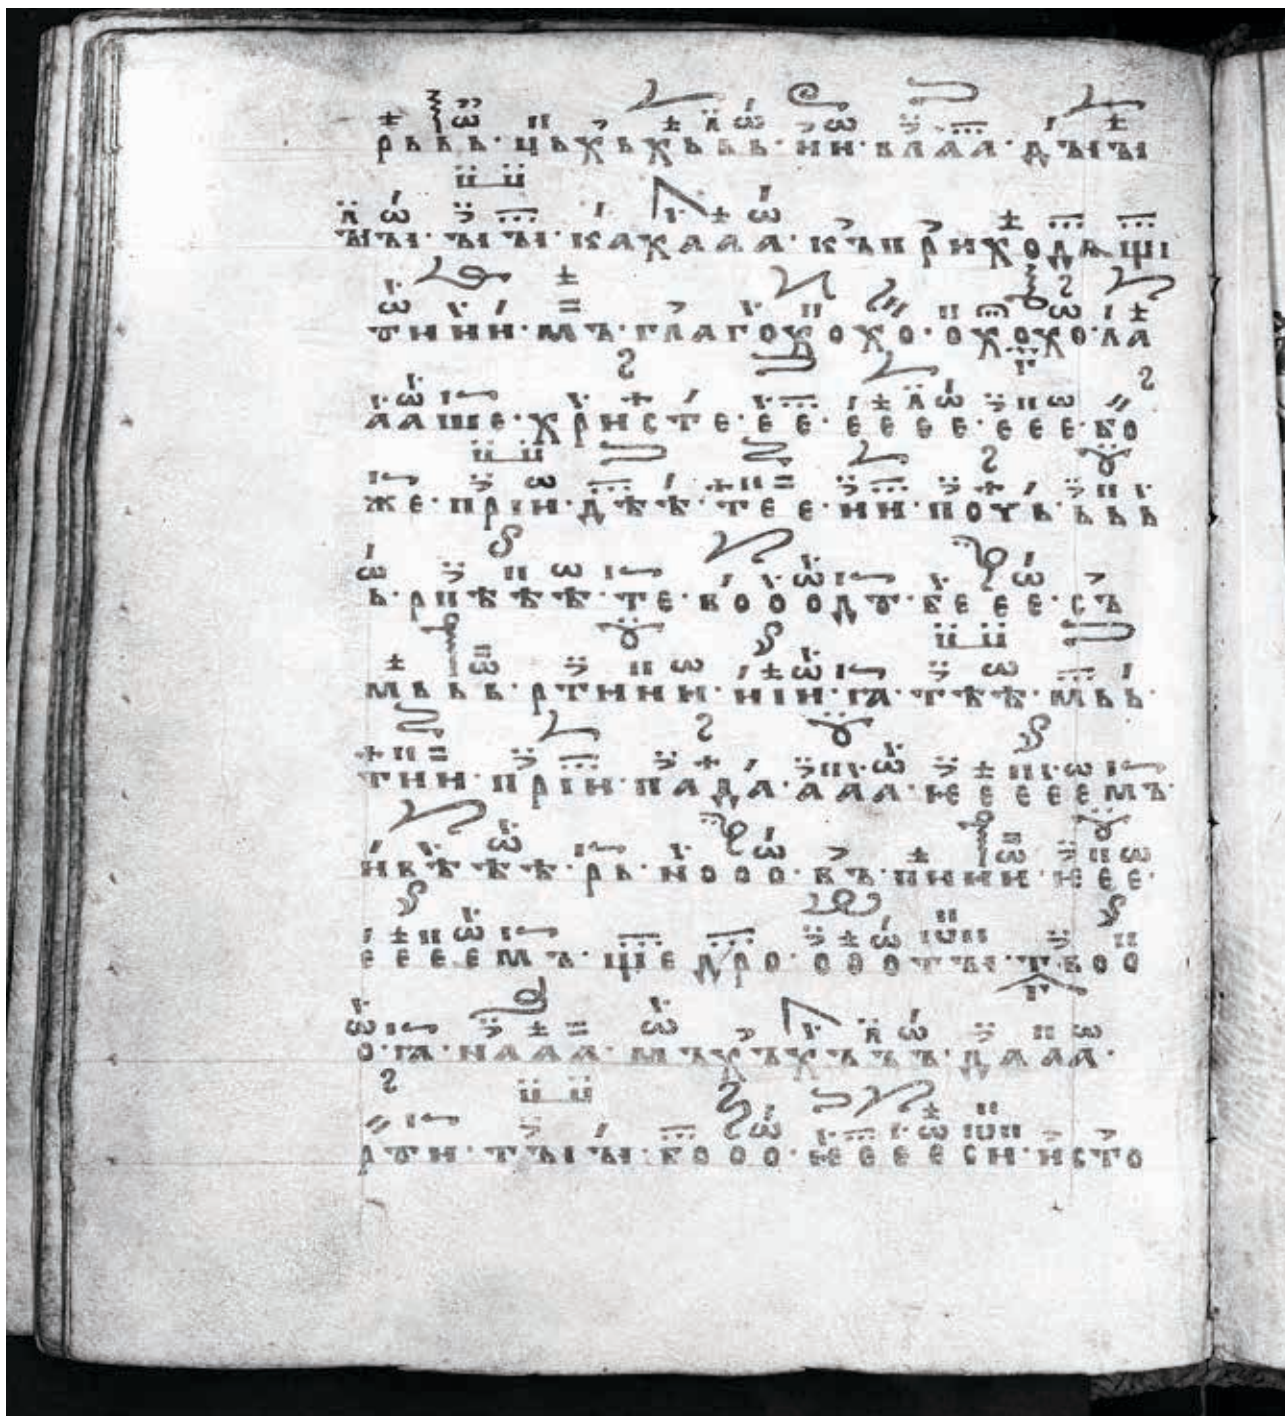 рььь·цьхъхььь·ни·влаа·дꙑꙑ
ꙑꙑ·ꙑꙑ·кахааа·къприходѧщі
тиии·мъ·глагохохо·охохо·ла
ааше·христе·ее·ееее·еее·бо
же·пріи·дѣѣ·те е·ии·поуь·ььь
ь·рпѣѣѣ·те·воооду·беее·съ
мььь·ртиии·ніи·ꙗ·тѣѣ·мьь·
тии·пріи·пада·ааа·ѥеееемъ·
ивѣѣѣ·рь·нооо·въ·пиии·ѥее·
еееемъ·щедро·оѳотꙑ·твоо
о·ꙗ·нааа·мъхъхъъъ·дааа·
рꙋи·тꙑꙑ·бооо·ѥееееси·исто